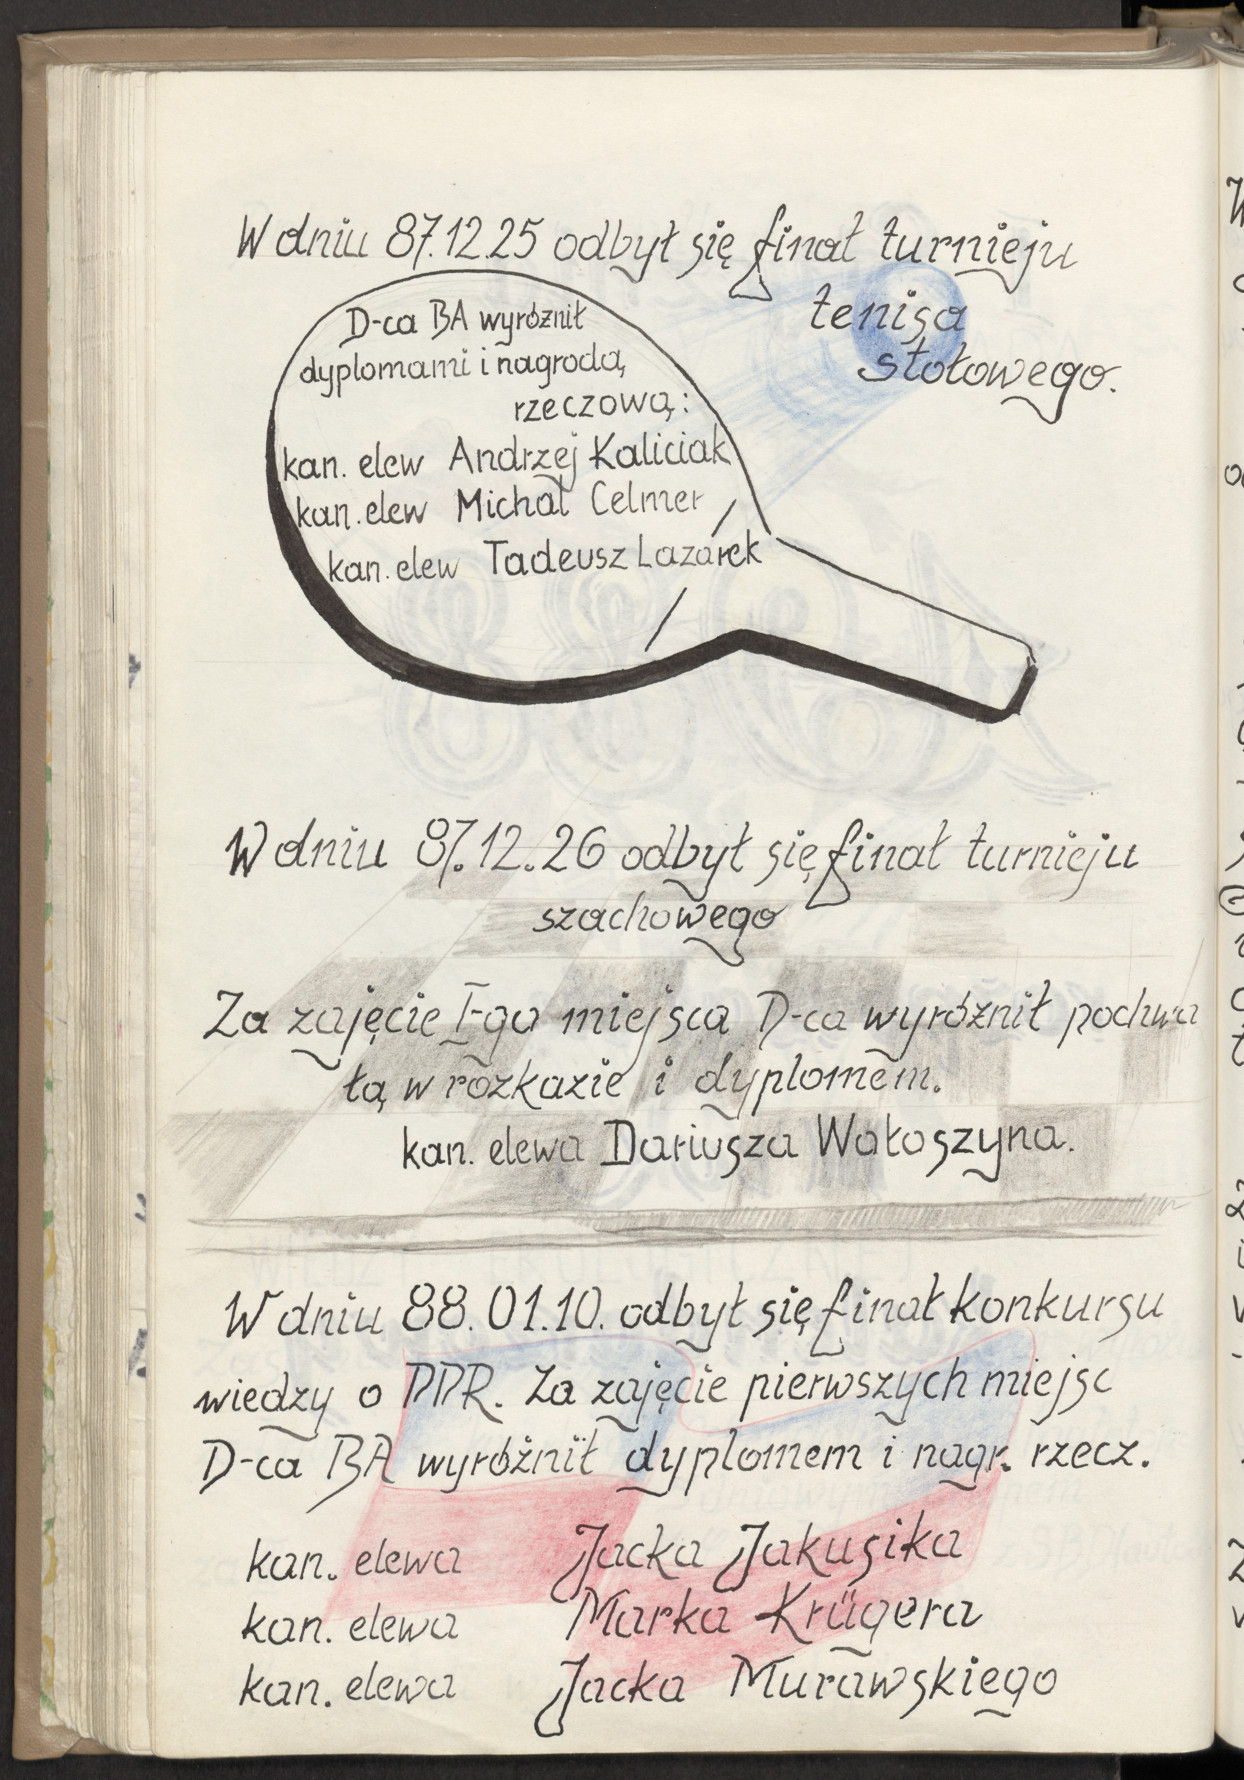 W dniu 87.12.25 odbył się finał turnieju
tenisa
stołowego.
D-ca BA wyróżnił
dyplomami i nagrodą
rzeczową:
kan. elew Andrzej Kaliciak
kan. elew Michał Celmer
kan. elew Tadeusz Lazarek
W dniu 87.12.26 odbył się finał turnieju
szachowego
Za zajęcie I-go miejsca D-ca wyróżnił pochwa
łą w rozkazie i dyplomem.
kan. elewa Dariusza Wołoszyna.
W dniu 88.01.10. odbył się finał konkursu
wiedzy o PPR. Za zajęcie pierwszych miejsc
D-ca BA wyróżnił dyplomem i nagr. rzecz.
kan. elewa Jacka Jakusika
kan. elewa Marka Krügera
kan. elewa Jacka Murawskiego